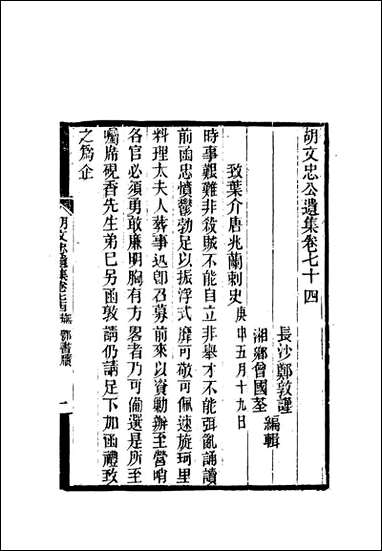 胡文忠公遺集卷七十四
長沙鄭敦謹
湘鄉曾國荃
編輯
致葉介唐兆蘭刺史庚申五月十九日
時事艱難非殺賊不能自立非舉才不能弭亂誦讀
前函忠憤鬱勃足以振浮式靡可敬可佩速旋珂里
料理太夫人葬事迅卽召募前來以資勦辦至營哨
各官必須勇敢廉明胸有方畧者乃可備選是所至
囑席硯香先生弟已另函敦請仍請足下加函禮致
之爲企
胡文忠遺集卷七十四 撫鄂書牘 一